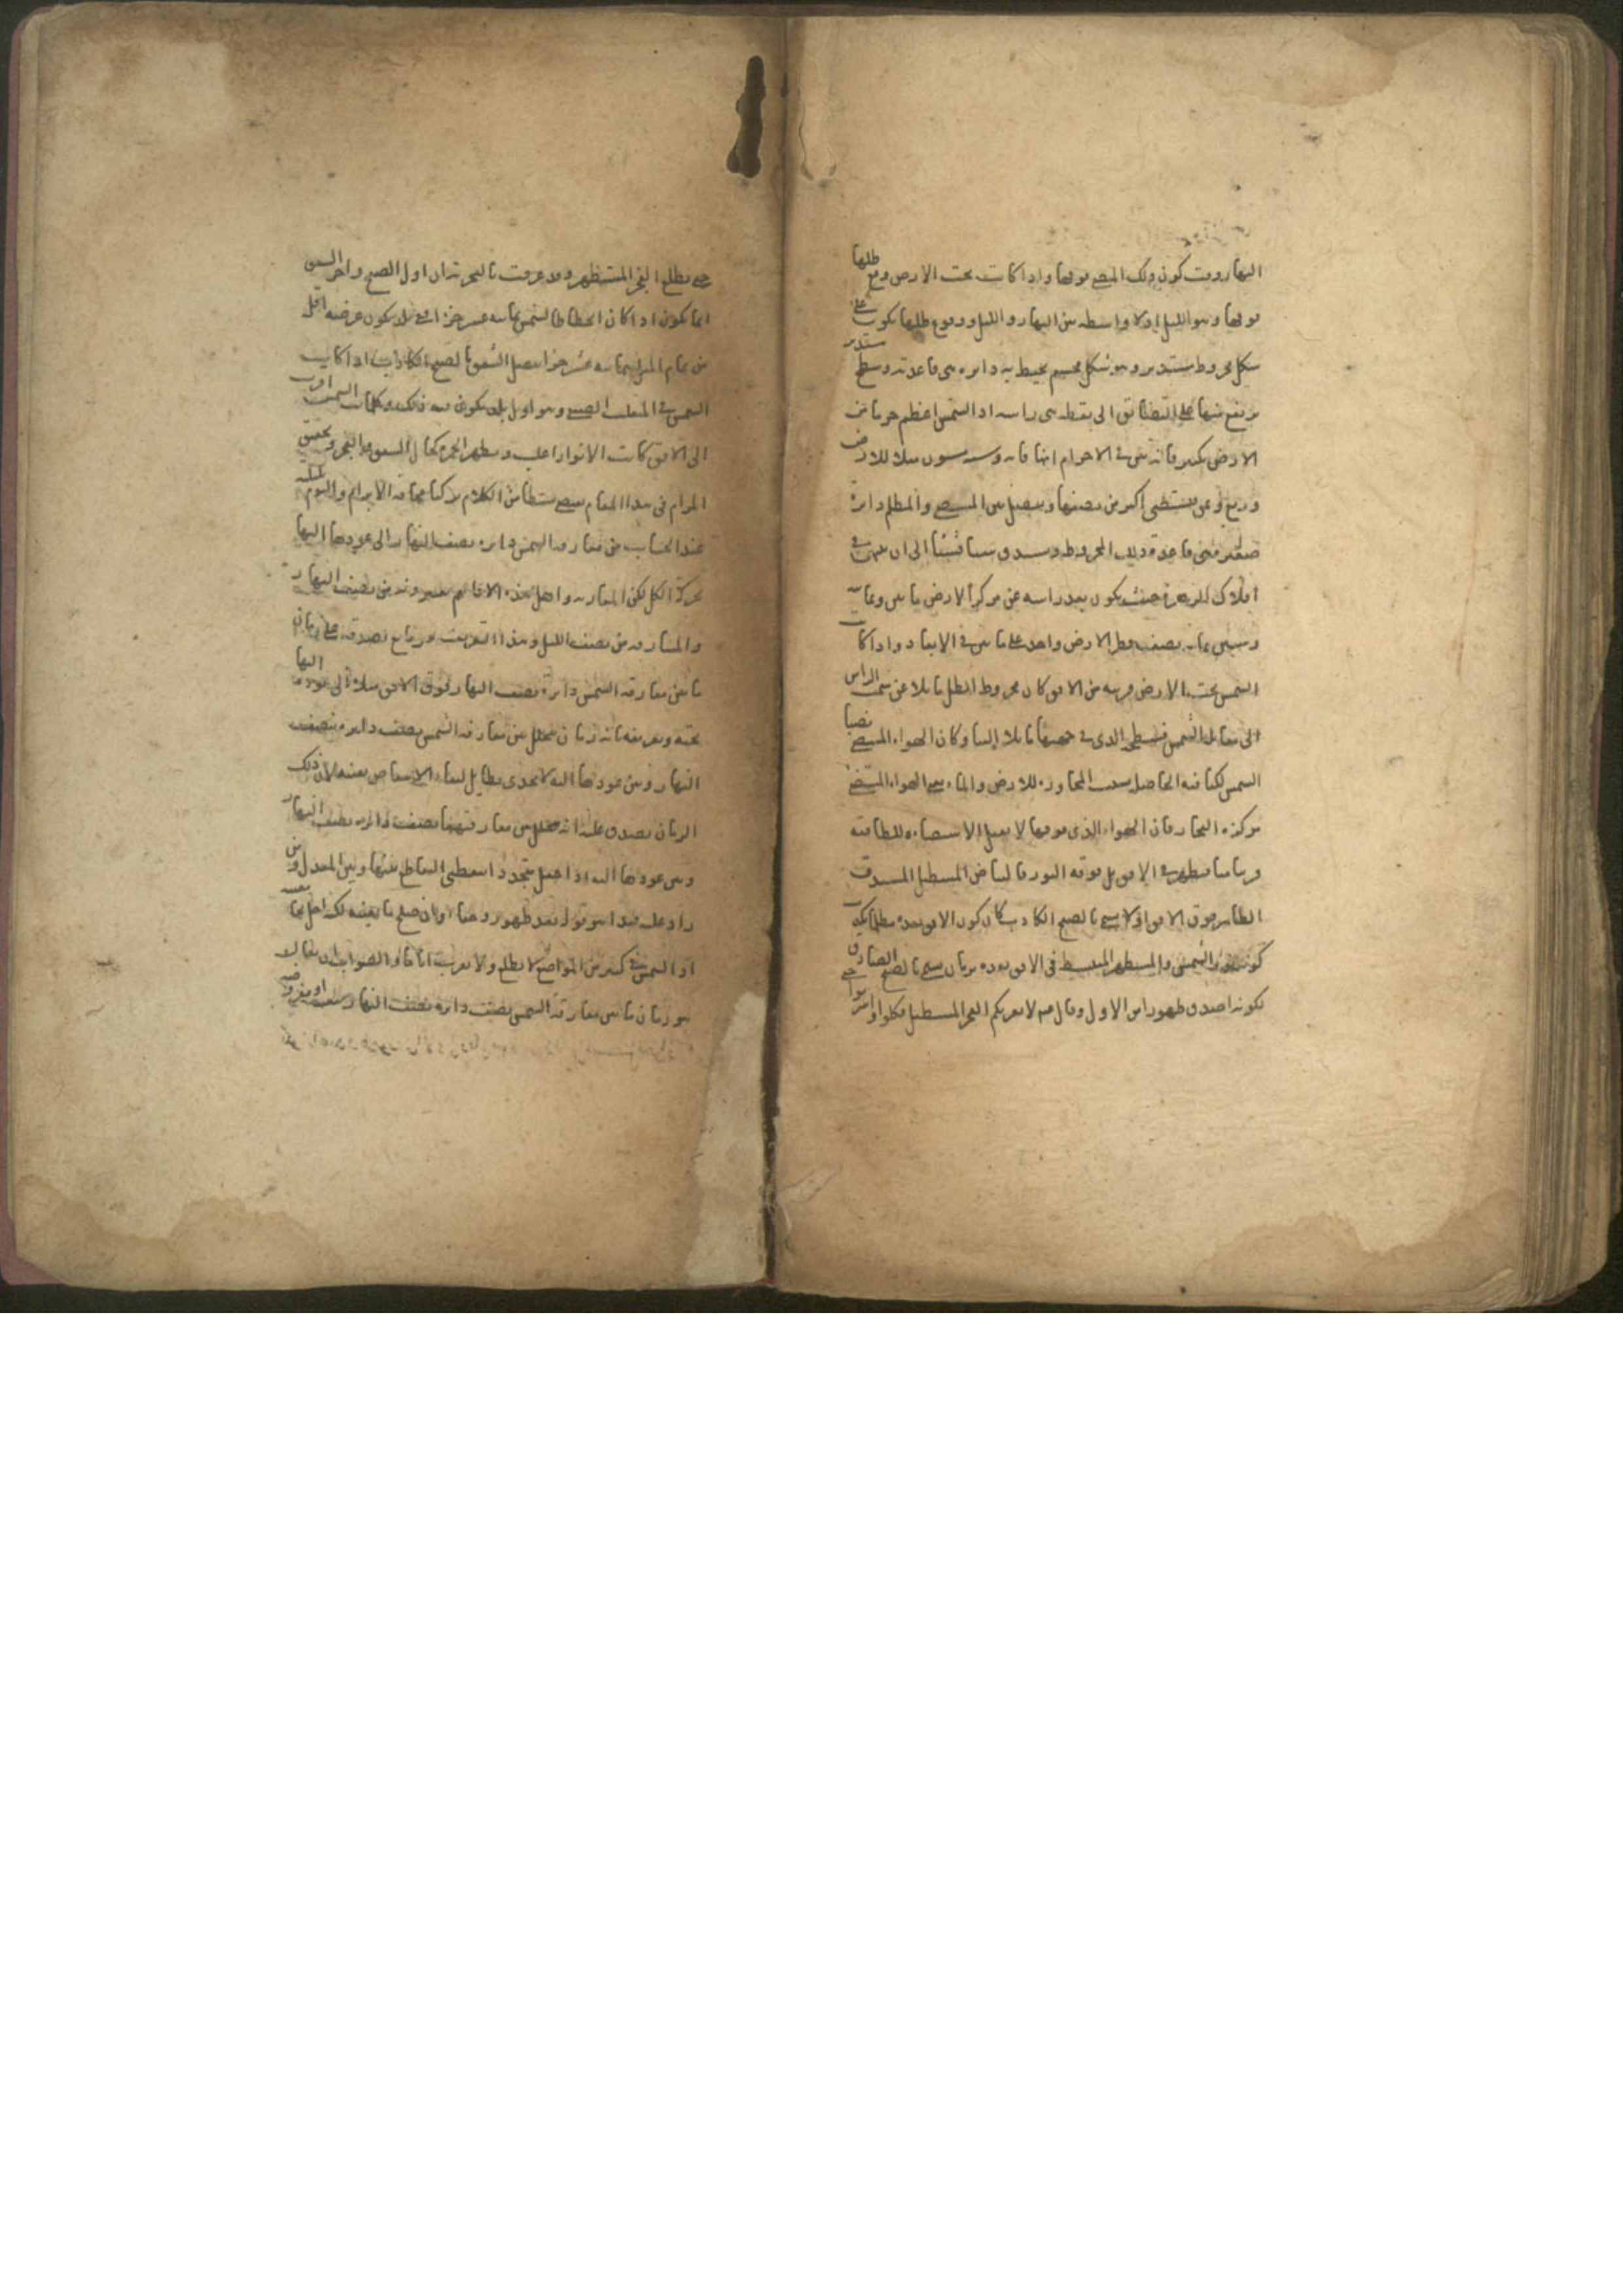 النهار وقت كون ذلك المضى فوقها واذا كانت تحت الارض وقع ظلها
فوقها وهو الليل اذ لا واسطة بين النهار والليل ووقوع ظلها يكون على
شكل مخروط مستدير وهو شكل مجسم يحيط به دايرة هى قاعدته وسطح مستدير
يرتفع منها على التضايق الى نقطة هى راسه اذ الشمس اعظم جرما من
الارض بكثير فانه بين فى الاجرام انها مائة وستة وستون مثلا للارض
وربع وثمن فيستضى اكثر من نصفها ويفصل بين المضى والمظلم دايرة
صغيرة هى قاعدة ذلك المخروط ويستدق شيئا فشيئا الى ان ينتهى فى
افلاك الزهرة حيث يكون بعد راسه عن مركز الارض مايتى وثمانية
وستين بما به نصف قطر الارض واحد على ما بين فى الابعاد واذا كانت
الشمس تحت الارض قريبة من الافق كان مخروط الظل مايلا عن سمت الراس
الى مقابلة الشمس فسطحه الذى فى جهتها مايلا الينا وكان الهواء المضى بضيا
الشمس لكثافته الحاصلة بسبب المجاورة للارض والماء يعنى الهواء المستضى
مركزه البخار فان الهواء الذى فوقها لا يقبل الاستضاءة للطافته
قريبا منا فيظهر فى الافق بل فوقه النور فالبياض المستطيل المستدق
الظاهر فوق الافق اولا يسمى بالصبح الكاذب كان كون الافق بعده مظلما يكذب
كونه نور الشمس والمستطير المنبسط فى الافق بعده بزمان يسمى بالصبح الصادق
لكونه اصدق ظهورا من الاول وقال عم لا يغرنكم الفجر المستطيل فكلوا واشربوا حتى
حتى يطلع الفجر المستطير وقد عرفت بالتجربة ان اول الصبح واخر الشفق
انما يكون اذا كان انحطاط الشمس ثمانية عشر جزا ففى بلد يكون عرضه اقل
من تمام الميل بثمانية عشر جزا يتصل الشفق بالصبح الكاذب اذا كانت
الشمس فى المنقلب الصيفى وهو اول بلد يكون فيه ذلك وكلما كانت الشمس اقرب
الى الافق كانت الانوار اغلب ويظهر الحمرة كحال الشفق والفجر وتحقيق
المرام فى هذا المقام يقتضى بسطا من الكلام تركنا مخافة الابرام واليوم بليلته
عند الحساب من مفارقة الشمس دايرة نصف النهار الى عودها اليها
بحركة الكل لكن المغاربة واهل هذه الاقاليم يعتبرونه من نصف النهار
والمشارقة من نصف الليل وهذا التعريف غير مانع لصدقه على زمان
ما بين مفارقة الشمس دايرة نصف النهار فوق الافق مثلا الى عودها اليها
تحته وتعريفه بانه زمان يتخلل بين مفارقة الشمس نصف دايرة نصف
النهار وبين عودها اليه لا يجدى بطايل لبقاء الانتقاض بعينه لان ذلك
الزمان يصدق عليه انه يتخلل بين مفارقتها نصف دايرة نصف النهار
وبين عودها اليه اذا جعل متحددا بنقطتى التقاطع بينها وبين المعدل ومن
زاد عليه قيدا هو قوله بعد ظهور وخفاء وان صلح ما يعنيه لكنه اخل بجامعيته
اذ الشمس فى كثير من المواضع لا تطلع ولا تغرب اياما والصواب ان يقال
هو زمان ما بين مفارقة الشمس نصف دايرة نصف النهار